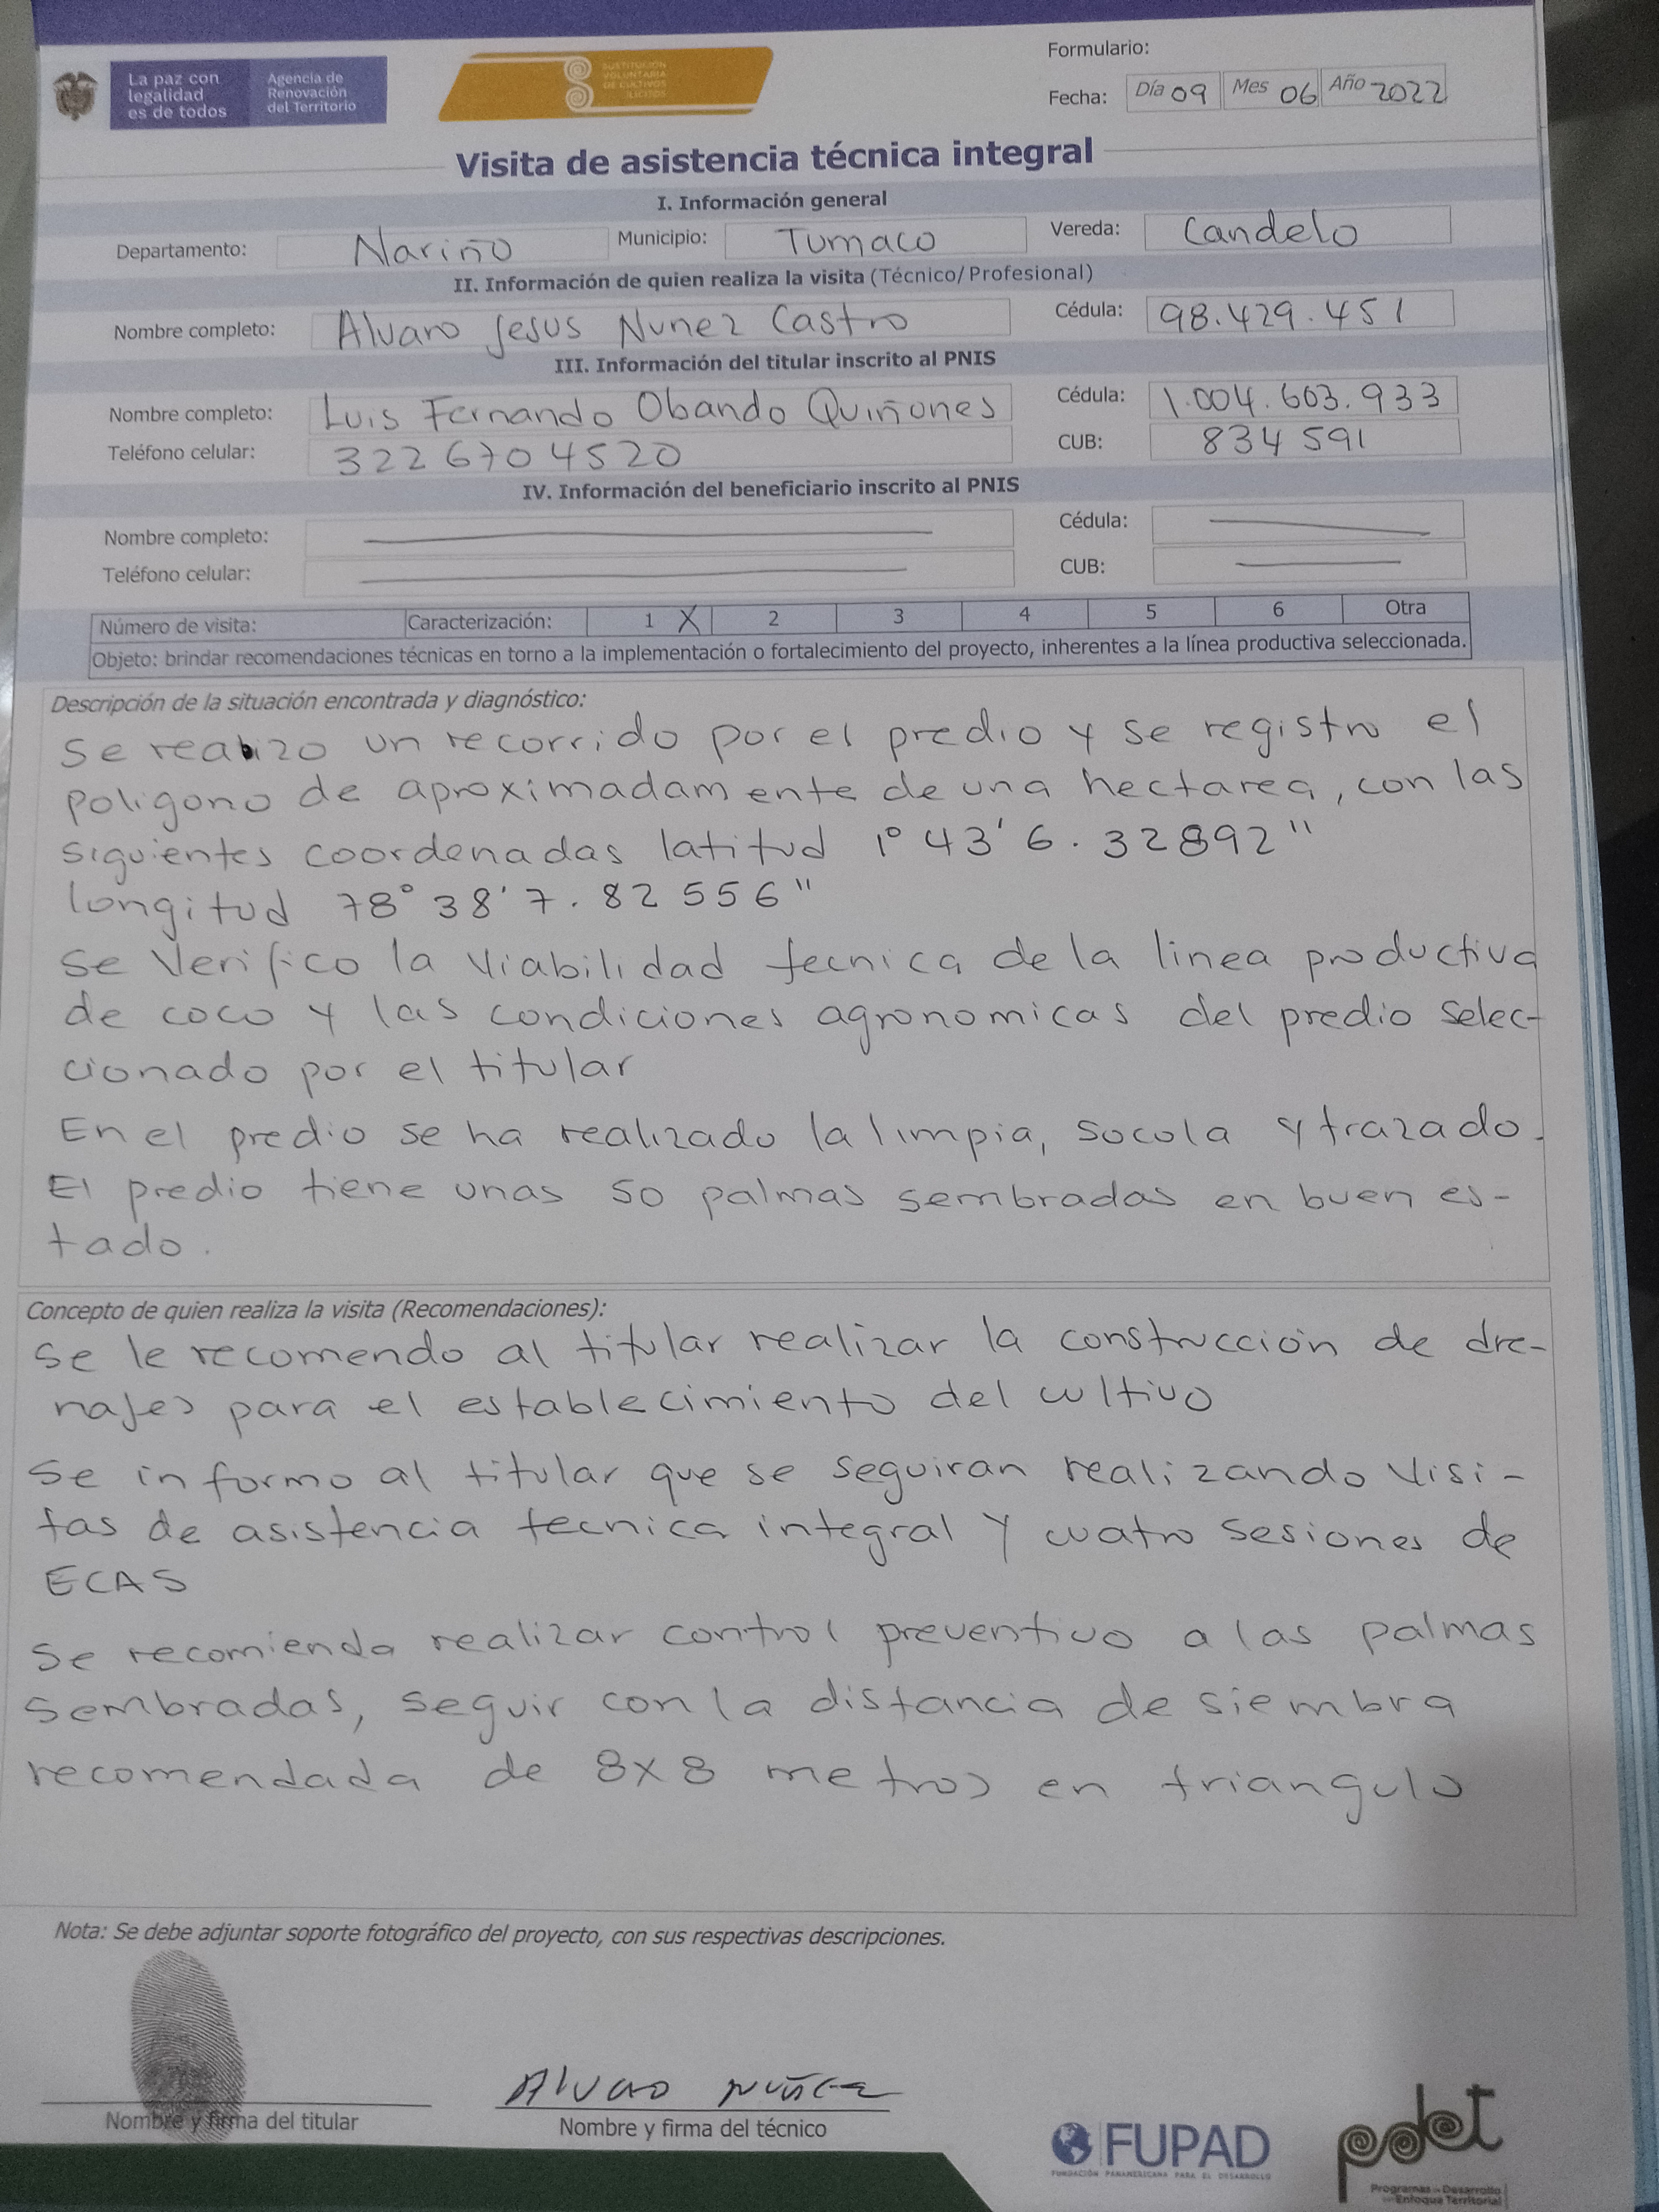 La paz con
legalidad
es de todos
Agencia de
Renovación
del Territorio
SUSTITUCIÓN
VOLUNTARIA
DE CULTIVOS
ILÍCITOS
Formulario:
Fecha: Día 09 Mes 06 Año 2022
Visita de asistencia técnica integral
I. Información general
Departamento: Nariño Municipio: Tumaco Vereda: Candelo
II. Información de quien realiza la visita (Técnico/Profesional)
Nombre completo: Alvaro Jesus Nunez Castro Cédula: 98.429.451
III. Información del titular inscrito al PNIS
Nombre completo: Luis Fernando Obando Quiñones Cédula: 1.004.603.933
Teléfono celular: 322 6704520 CUB: 834 591
IV. Información del beneficiario inscrito al PNIS
Nombre completo: Cédula:
Teléfono celular: CUB:
Número de visita: Caracterización: 1 X 2 3 4 5 6 Otra
Objeto: brindar recomendaciones técnicas en torno a la implementación o fortalecimiento del proyecto, inherentes a la línea productiva seleccionada.
Descripción de la situación encontrada y diagnóstico:
Se realizo un recorrido por el predio y se registro el
poligono de aproximadamente de una hectarea, con las
siguientes coordenadas latitud 1° 43' 6.32892"
longitud 78° 38' 7.82556"
Se Verifico la Viabilidad tecnica de la linea productiva
de coco y las condiciones agronomicas del predio selec-
cionado por el titular
En el predio se ha realizado la limpia, socola y trazado.
El predio tiene unas 50 palmas sembradas en buen es-
tado.
Concepto de quien realiza la visita (Recomendaciones):
Se le recomendo al titular realizar la construcción de dre-
najes para el establecimiento del cultivo
Se informo al titular que se seguiran realizando Visi-
tas de asistencia tecnica integral y cuatro sesiones de
ECAS
Se recomienda realizar control preventivo a las palmas
sembradas, seguir con la distancia de siembra
recomendada de 8x8 metros en triangulo
Nota: Se debe adjuntar soporte fotográfico del proyecto, con sus respectivas descripciones.
Alvaro Núñez
Nombre y firma del titular
Nombre y firma del técnico
FUPAD
FUNDACIÓN PANAMERICANA PARA EL DESARROLLO
pdet
Programas de Desarrollo
con Enfoque Territorial